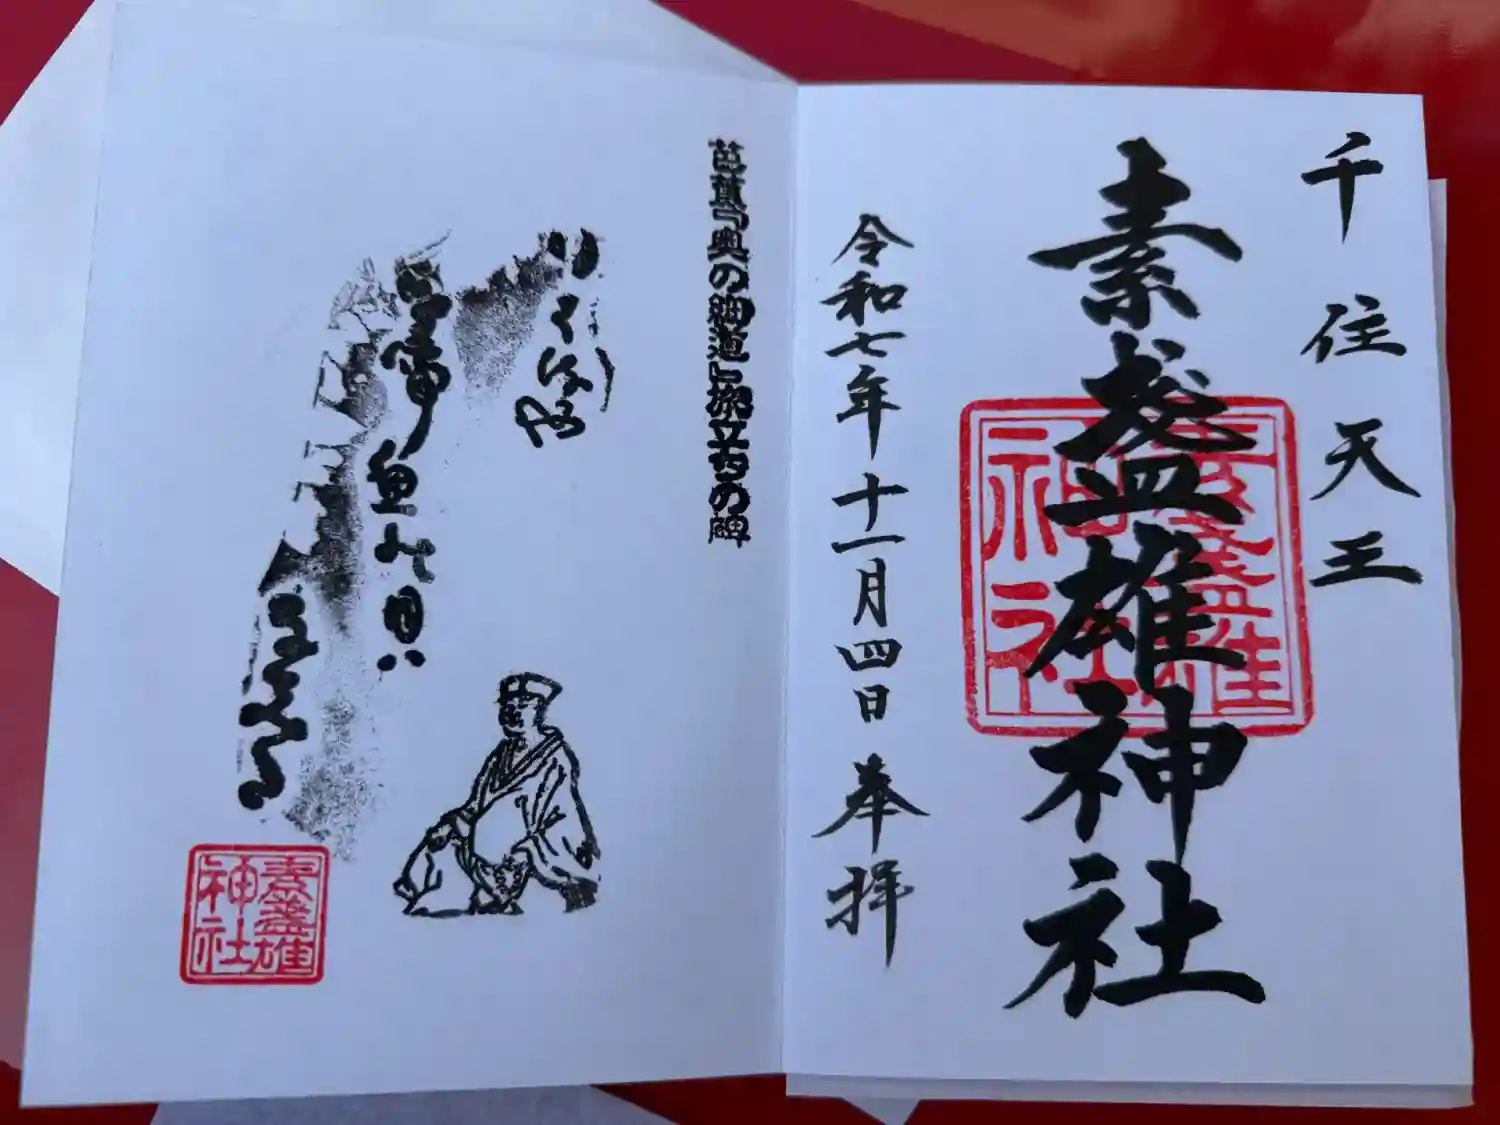 千住天王
素盞雄神社
素盞雄
神社
令和七年十一月四日 奉拝
芭蕉『奥の細道』旅立ちの碑
鳥啼魚の目ハ
素盞雄
神社